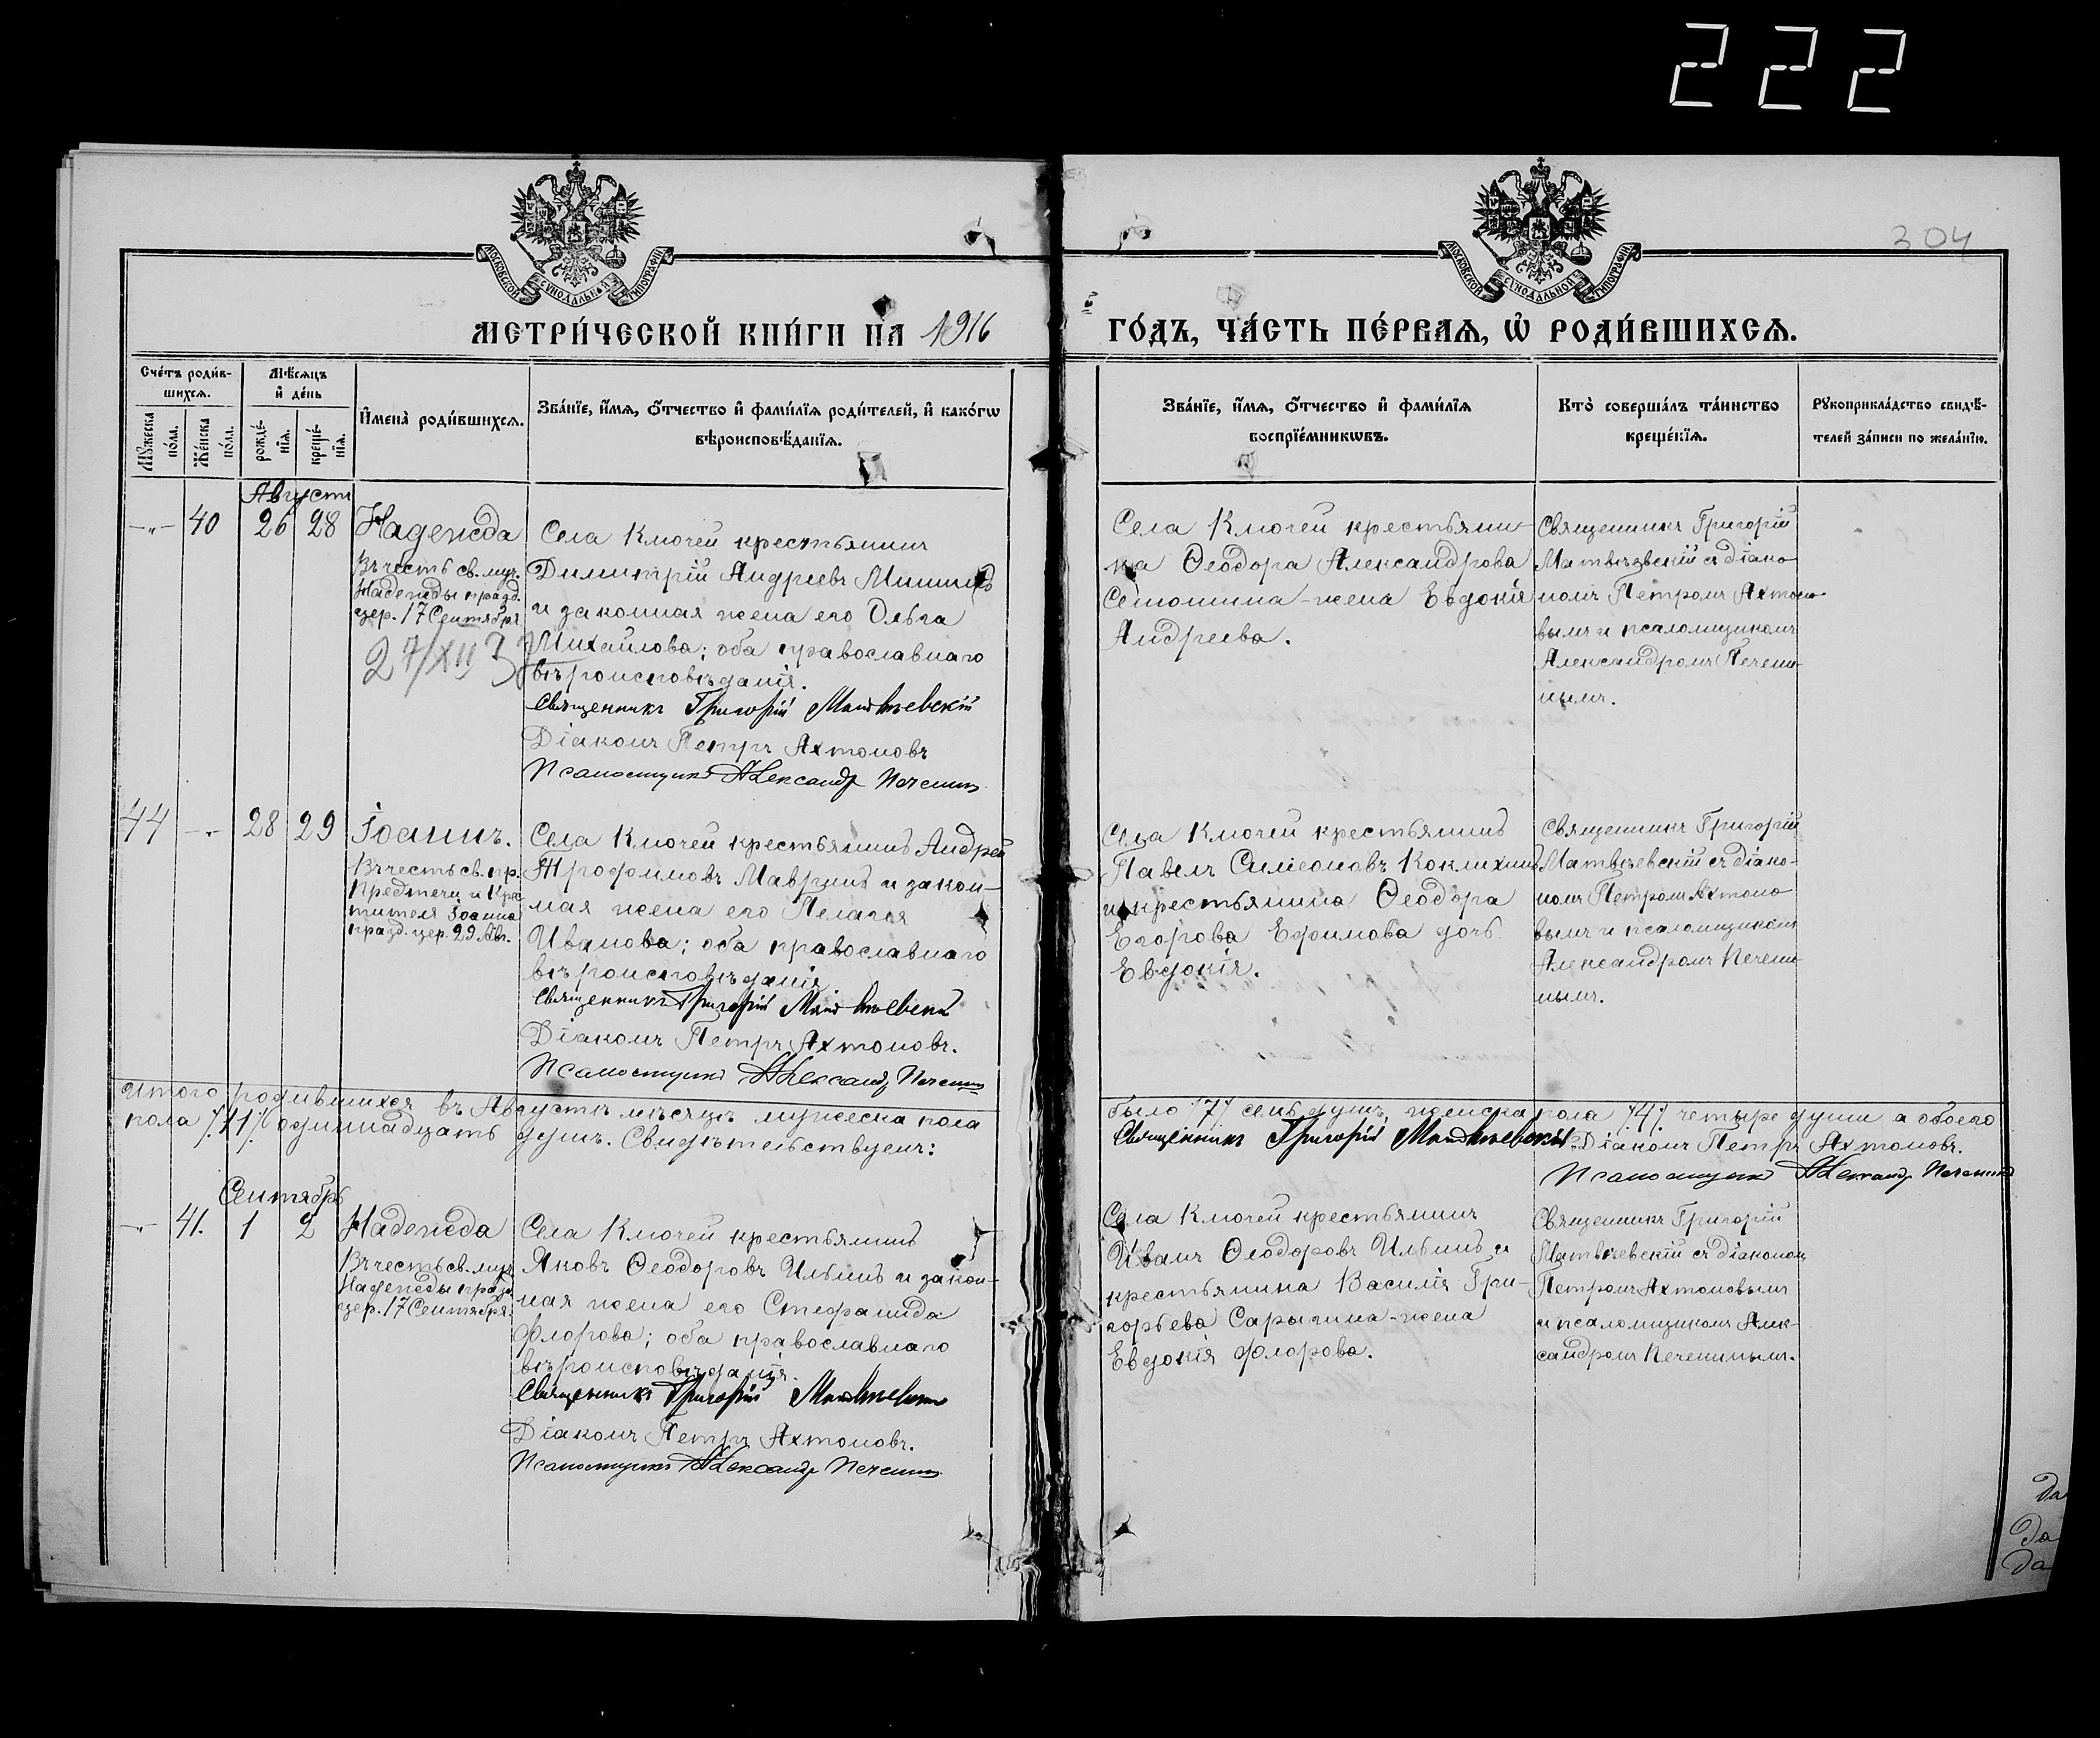 222
304
МОСКОВСКОЙ СѴНОДАЛЬНОЙ ТИПОГРАФІИ
МОСКОВСКОЙ СѴНОДАЛЬНОЙ ТИПОГРАФІИ
МЕТРИ́ЧЕСКОЙ КНИ́ГИ НА 1916
ГО́ДЪ, ЧА́СТЬ ПЕ́РВАѦ, Ѽ РОДИ́ВШИХСѦ.
Сче́тъ роди́в-
шихсѧ.
Мꙋ́жеска
по́ла.
Же́нска
по́ла.
Мѣ́сѧцъ
и҆ де́нь
рожде́-
нїѧ.
креще́-
нїѧ.
И҆мена̀ роди́вшихсѧ.
Зва́нїе, и҆́мѧ, ѻ҆́тчество и҆ фами́лїѧ роди́телей, и҆ како́гѡ
вѣроисповѣ́данїѧ.
Зва́нїе, и҆́мѧ, ѻ҆́тчество и҆ фами́лїѧ
воспрїе́мникѡвъ.
Кто̀ соверша́лъ та́инство
креще́нїѧ.
Рꙋкоприкла́дство свидѣ́-
телей за́писи по жела́нїю.
Августъ
-„- 40 26 28
Надежда
Въ честь св. муч.
Надежды празд.
цер. 17 Сентября
27/XII 3
Села Ключей крестьянинъ
Димитрій Андреевъ Мишинъ
и законная жена его Ольга
Михайлова; оба православнаго
вѣроисповѣданія.
Священникъ Григорій Матвѣевскій
Діаконъ Петръ Ахтоновъ
Псаломщикъ Александр Печенин
Села Ключей крестьяни-
на Ѳеодора Александрова
Сенюшина - жена Евдокія
Андреева.
Священникъ Григорій
Матвѣевскій съ діако-
номъ Петромъ Ахтоно-
вымъ и псаломщикомъ
Александромъ Печени-
нымъ.
44 -„- 28 29
Іоаннъ.
Въ честь св. пр.
Предтечи и Крес
тителя Іоанна
празд. цер. 29 Авг.
Села Ключей крестьянинъ Андрей
Трофимовъ Мавринъ и закон-
ная жена его Пелагія
Иванова; оба православнаго
вѣроисповѣданія
Священникъ Григорій Матвѣевскій
Діаконъ Петръ Ахтоновъ.
Псаломщикъ Александр Печенин
Села Ключей крестьянинъ
Павелъ Симеоновъ Коклихинъ
и крестьянина Ѳеодора
Егорова Ефимова дочь
Евдокія.
Священникъ Григорій
Матвѣевскій съ діако-
номъ Петромъ Ахтоно-
вымъ и псаломщикомъ
Александромъ Печени-
нымъ.
Итого родившихся въ Августѣ мѣсяцѣ мужеска пола
было /7/ семь душъ, женска пола /4/ четыре души а обоего
пола /11/ одиннадцать душъ. Свидѣтельствуемъ:
Священникъ Григорій Матвѣевскій. Діаконъ Петръ Ахтоновъ.
Псаломщикъ Александр Печенинъ
Сентябрь
-„- 41. 1 2
Надежда
Въ честь св. муч.
Надежды празд.
цер. 17 Сентября.
Села Ключей крестьянинъ
Яковъ Ѳеодоровъ Ильинъ и закон-
ная жена его Стефанида
Флорова; оба православнаго
вѣроисповѣданія.
Священникъ Григорій Матвѣевскій
Діаконъ Петръ Ахтоновъ.
Псаломщикъ Александр Печенин
Села Ключей крестьянинъ
Иванъ Ѳеодоровъ Ильинъ и
крестьянина Василія Гри-
горьева Сарычина - жена
Евдокія Флорова.
Священникъ Григорій
Матвѣевскій съ діакономъ
Петромъ Ахтоновымъ
и псаломщикомъ Алек-
сандромъ Печенинымъ.
да
да
да